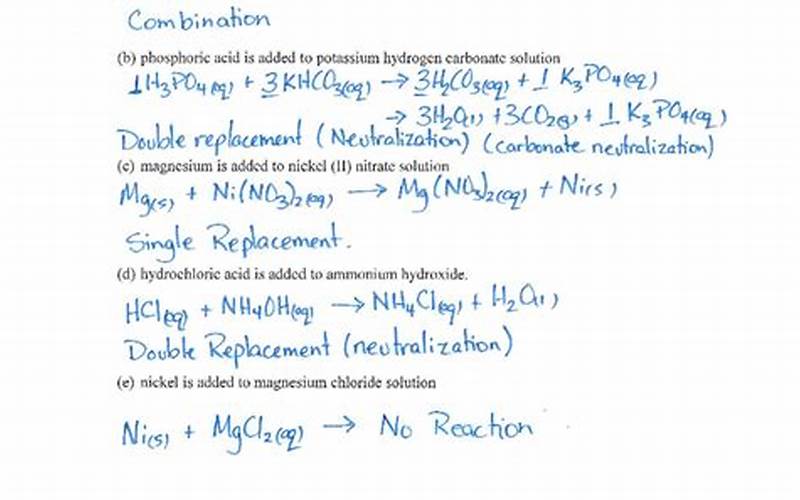 Combination
(b) phosphoric acid is added to potassium hydrogen carbonate solution
1 H₃PO₄(aq) + 3 KHCO₃(aq) → 3 H₂CO₃(aq) + 1 K₃PO₄(aq)
→ 3H₂O(l) + 3CO₂(g) + 1 K₃PO₄(aq)
Double replacement (Neutralization) (carbonate neutralization)
(c) magnesium is added to nickel (II) nitrate solution
Mg(s) + Ni(NO₃)₂(aq) → Mg(NO₃)₂(aq) + Ni(s)
Single Replacement.
(d) hydrochloric acid is added to ammonium hydroxide.
HCl(aq) + NH₄OH(aq) → NH₄Cl(aq) + H₂O(l)
Double Replacement (neutralization)
(e) nickel is added to magnesium chloride solution
Ni(s) + MgCl₂(aq) → No Reaction